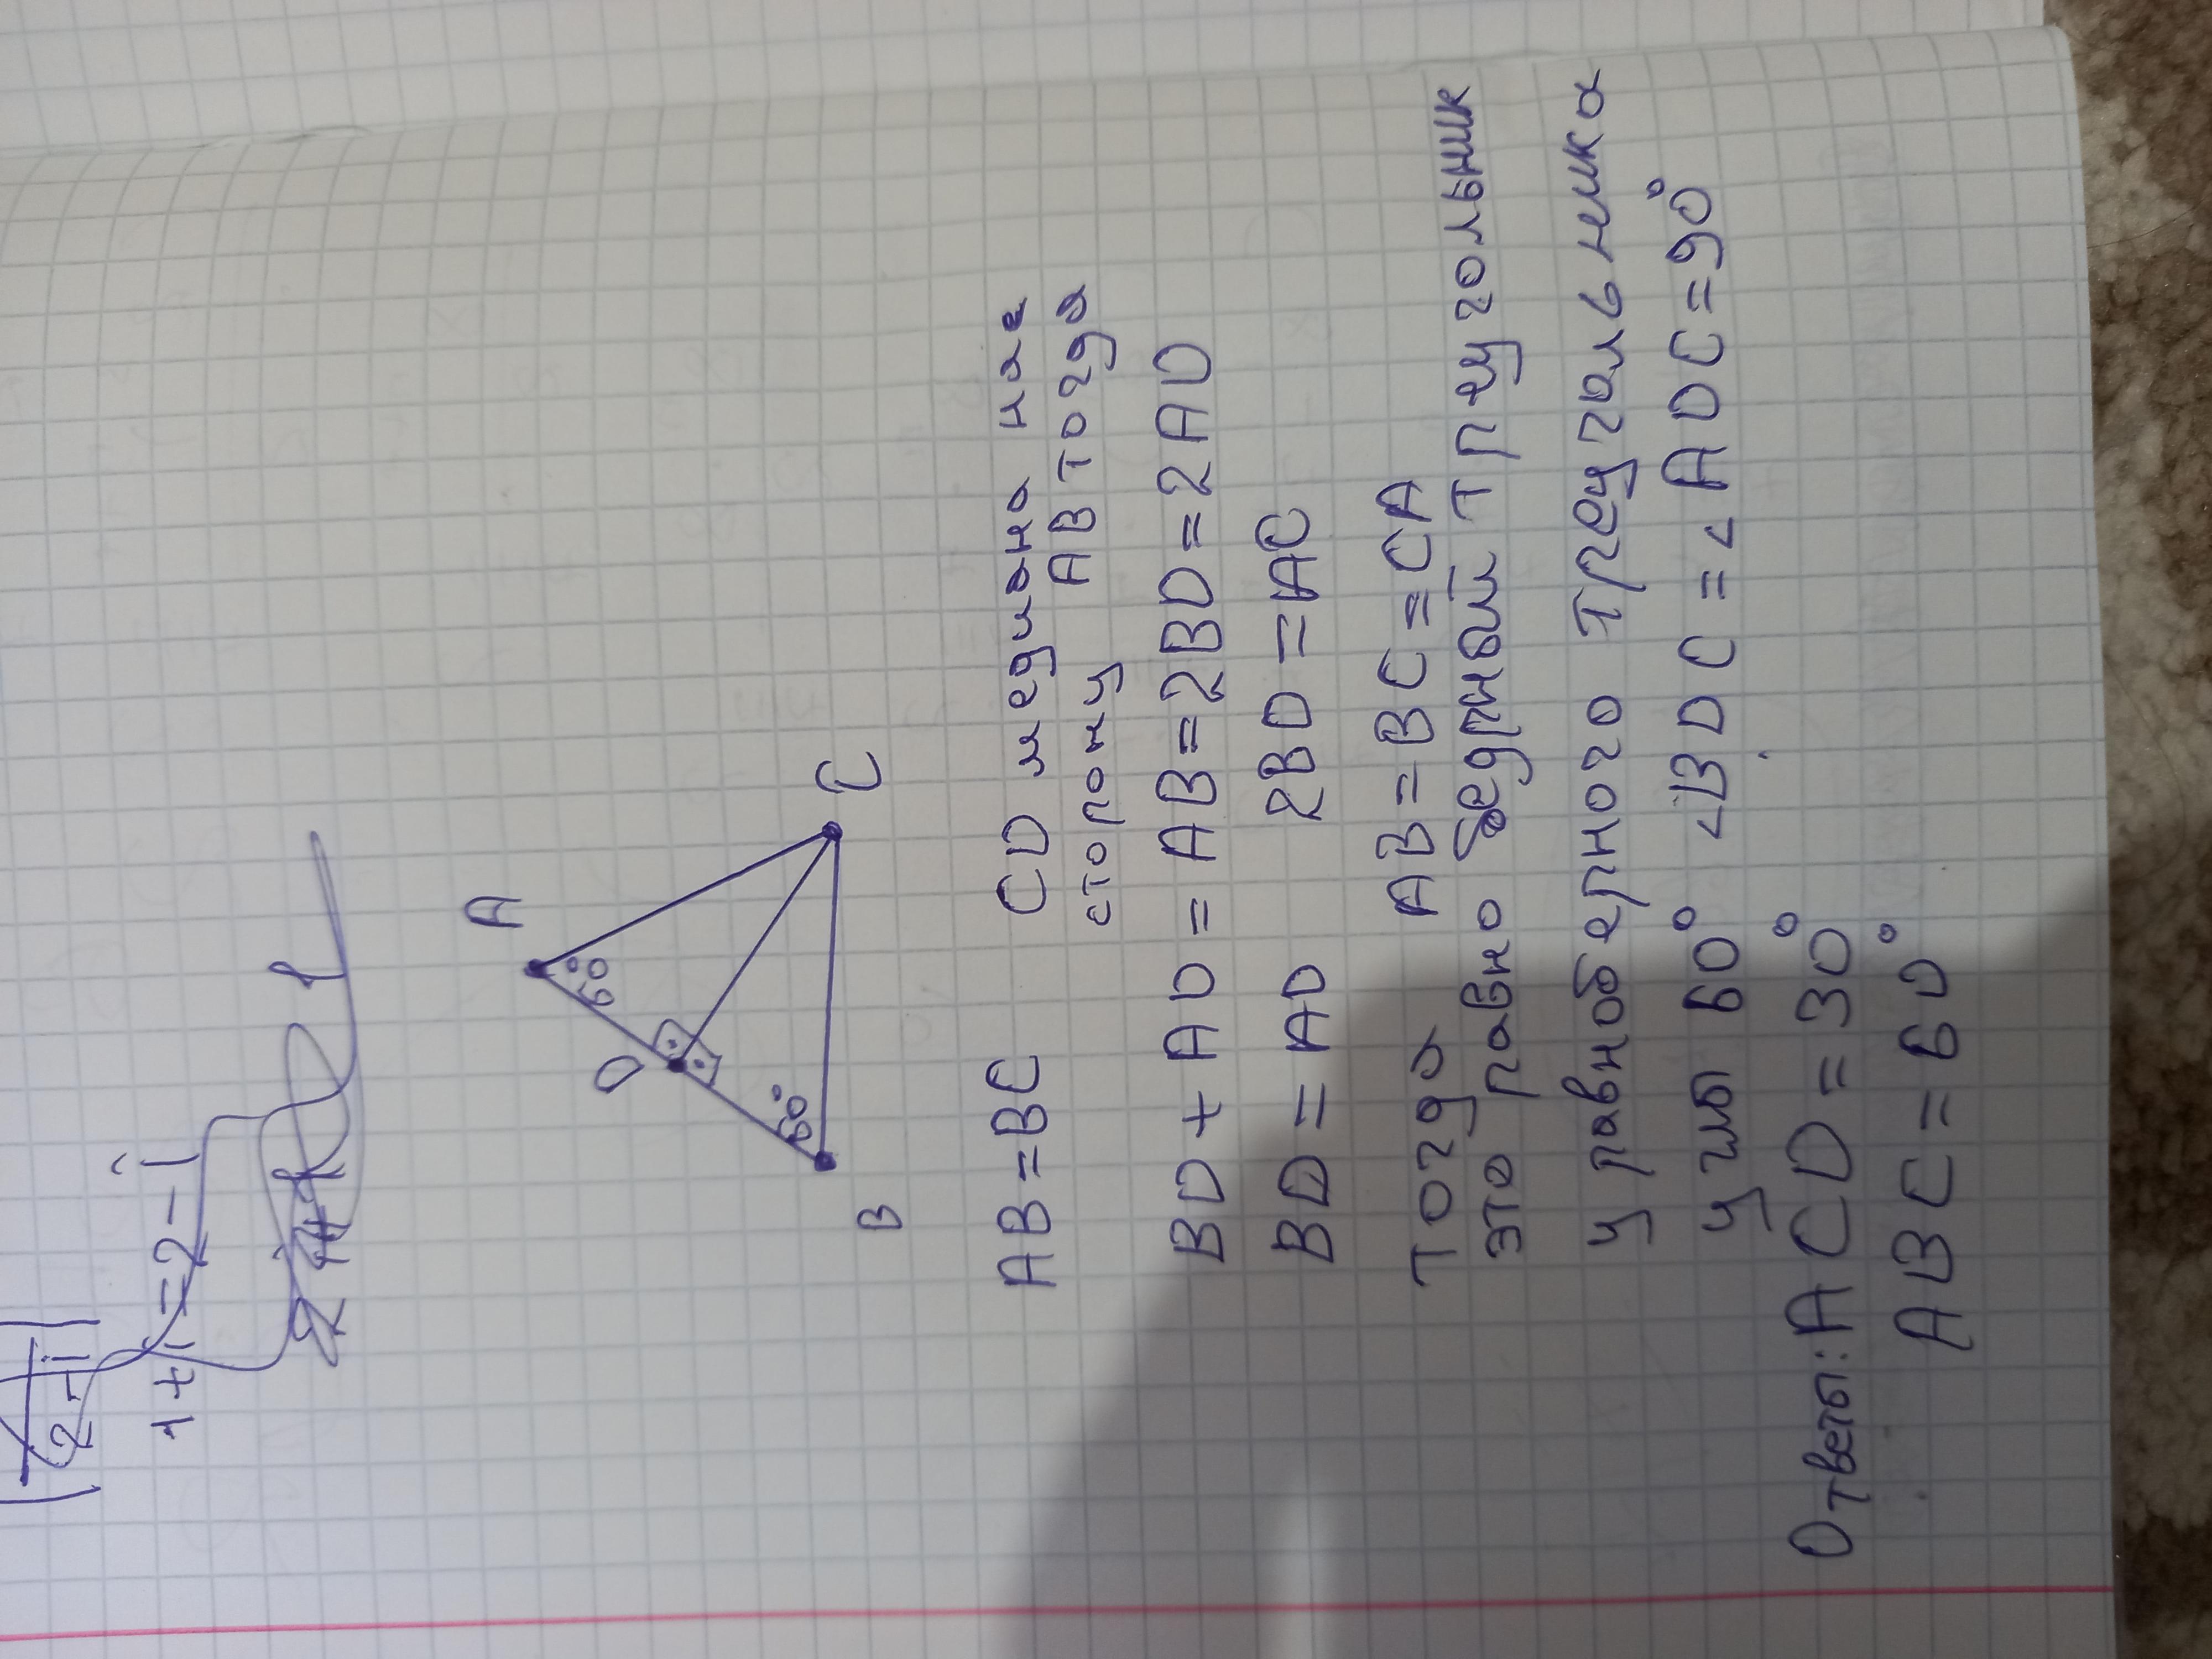 2-i
1+i=2-i
A
60°
D
60°
B
C
AB=BC CD медиана на
сторону AB тогда
BD+AD=AB=2BD=2AD
BD=AD 2BD=AC
тогда AB=BC=CA
это равно бедрный треугольник
у равноберного треугальника
углы 60° <BDC=<ADC=90°
Ответы: ACD=30°
ABC=60°